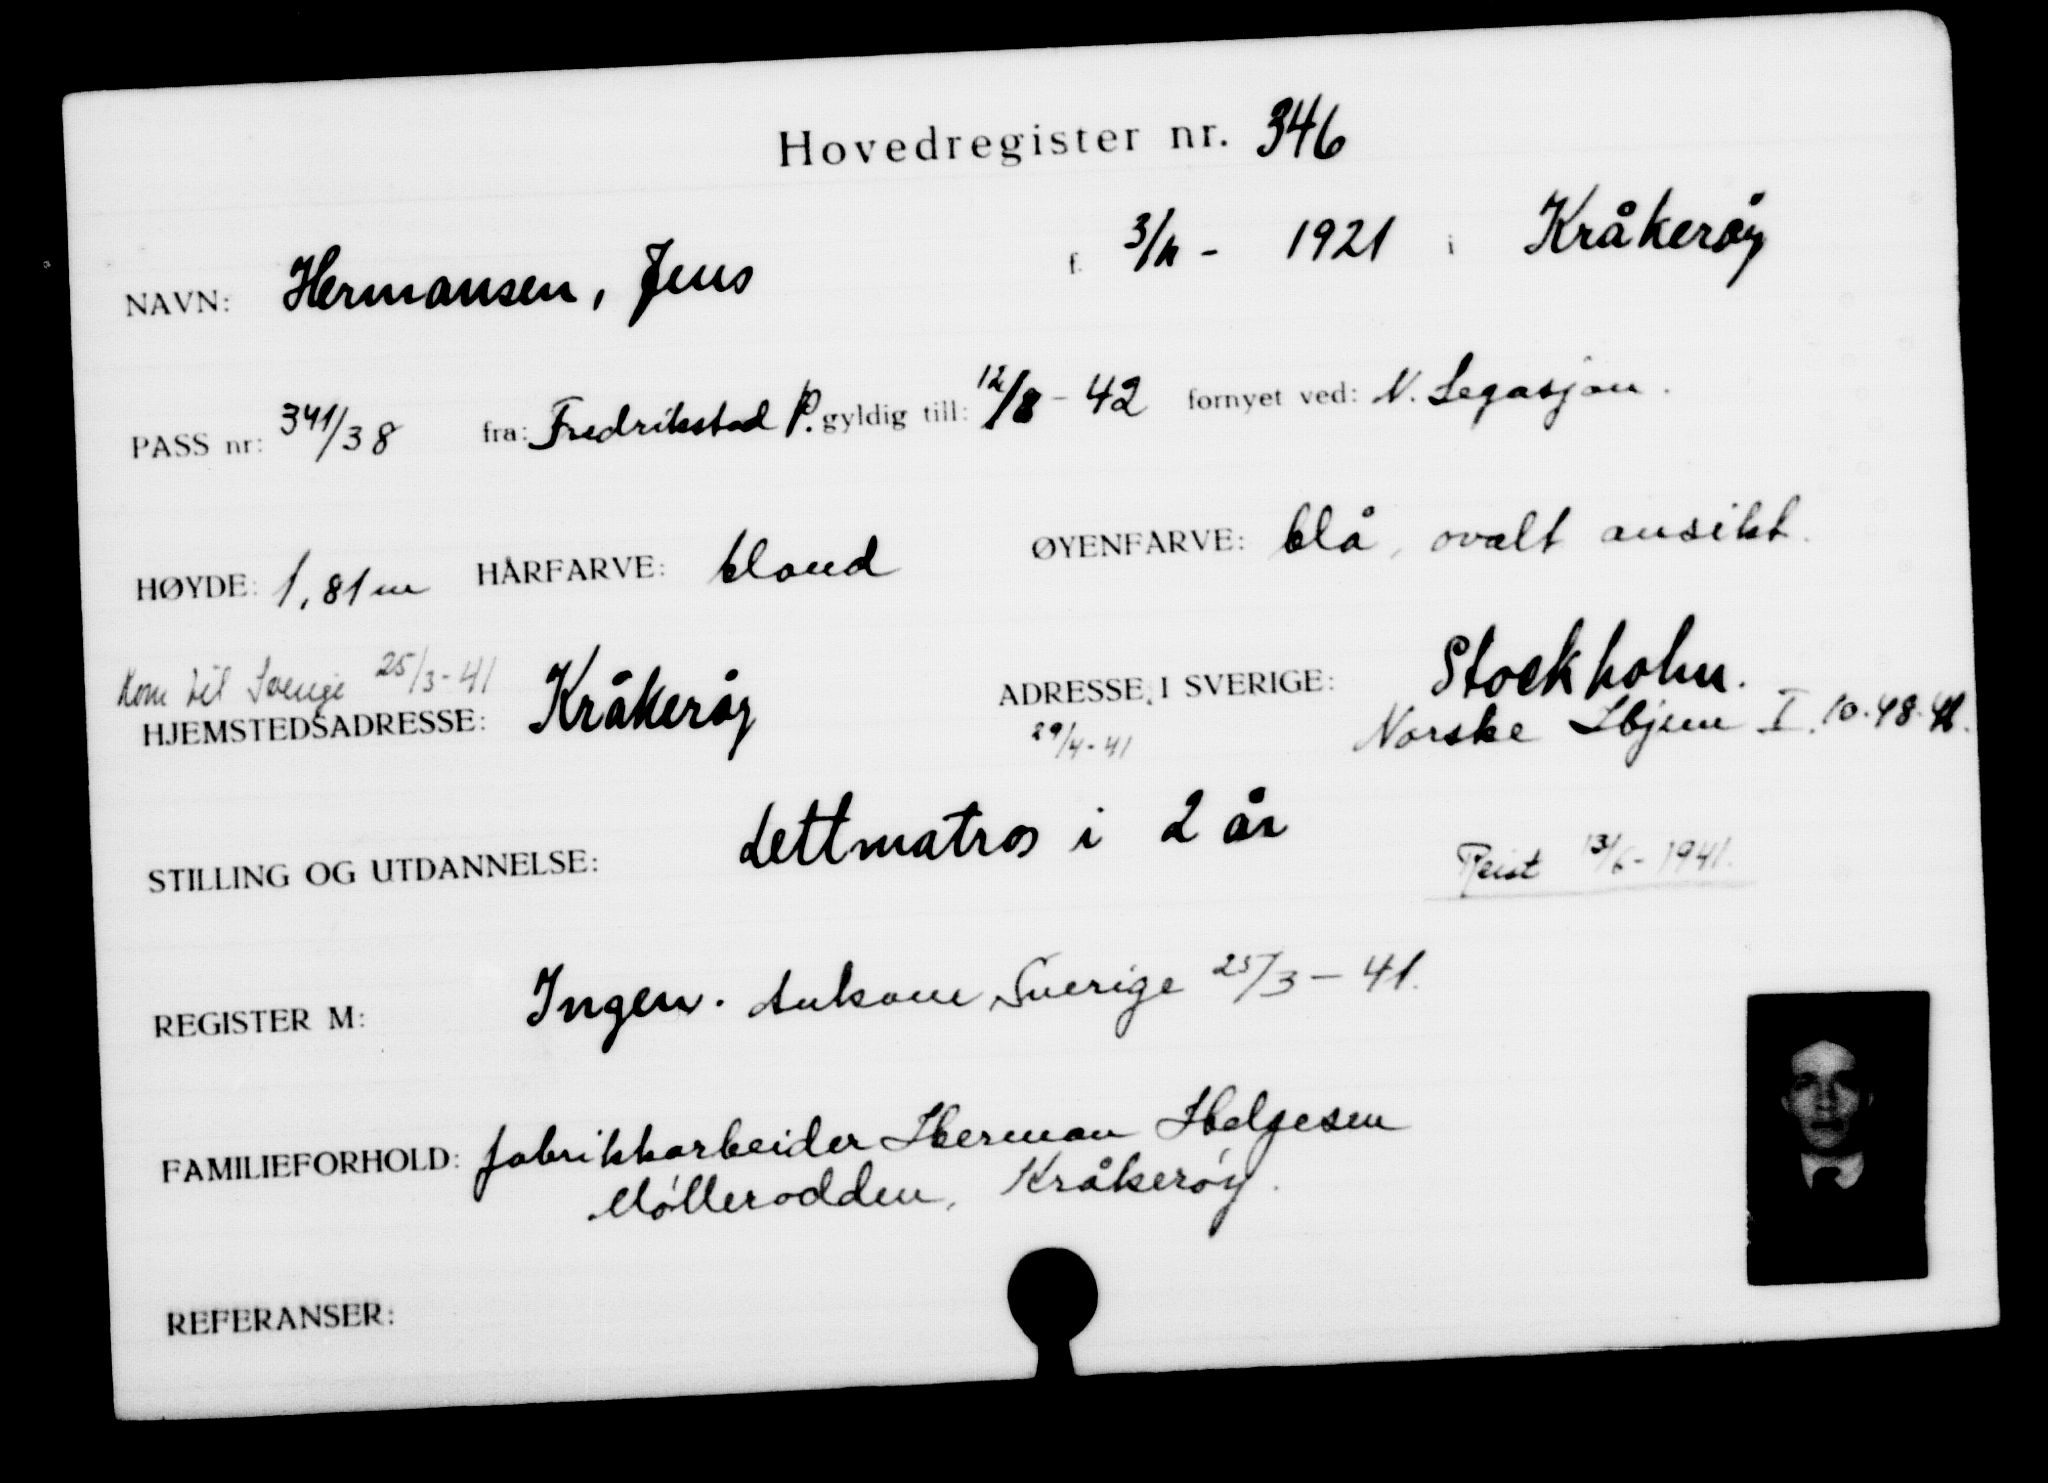 Hovedregister nr. 346
NAVN: Hermansen, Jens f. 3/11 - 1921 i Kråkerøy
PASS nr: 341/38 fra: Fredrikstad P. gyldig till: 12/8 - 42 fornyet ved: N. Legasjon.
HØYDE: 1,81 m HÅRFARVE: blond ØYENFARVE: blå, ovalt ansikt.
Kom til Sverige 25/3-41
HJEMSTEDSADRESSE: Kråkerøy ADRESSE I SVERIGE: Stockholm.
29/4-41 Norske Hjem I. 10.48.42.
STILLING OG UTDANNELSE: Lettmatros i 2 år
Reist 13/6-1941.
REGISTER M: Ingen. Ankom Sverige 25/3-41.
FAMILIEFORHOLD: fabrikkarbeider Herman Helgesen
Møllerodden, Kråkerøy.
REFERANSER: